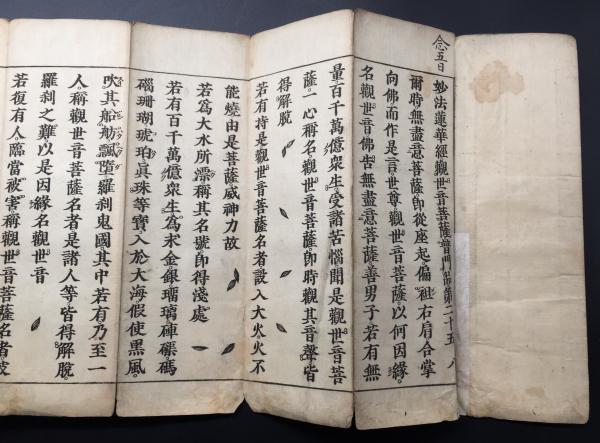 念五日
妙法蓮華經觀世音菩薩普門品第二十五 八
爾時無盡意菩薩即從座起偏袒右肩合掌
向佛而作是言世尊觀世音菩薩以何因緣
名觀世音佛告無盡意菩薩善男子若有無
量百千萬億眾生受諸苦惱聞是觀世音菩
薩一心稱名觀世音菩薩即時觀其音聲皆
得解脫
若有持是觀世音菩薩名者設入大火火不
能燒由是菩薩威神力故
若為大水所漂稱其名號即得淺處
若有百千萬億眾生為求金銀瑠璃硨磲碼
碯珊瑚琥珀真珠等寶入於大海假使黑風
吹其船舫飄墮羅剎鬼國其中若有乃至一
人稱觀世音菩薩名者是諸人等皆得解脫
羅剎之難以是因緣名觀世音
若復有人臨當被害稱觀世音菩薩名者彼